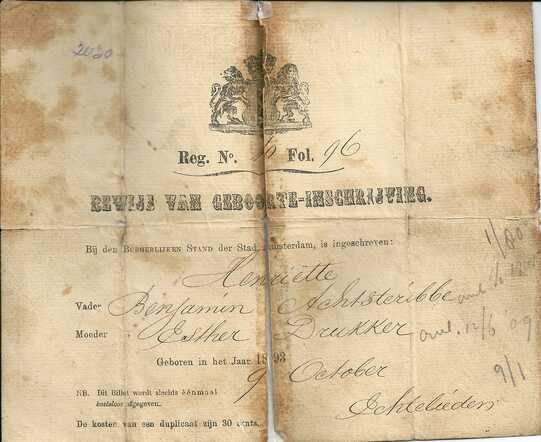 2030
Reg. No. Fol. 96
BEWIJS VAN GEBOORTE-INSCHRIJVING.
Bij den BURGERLIJKEN STAND der Stad Amsterdam, is ingeschreven:
1/80
Henriëtte
Vader Benjamin Achtsteribbe
Moeder Esther Drukker overl. 12/6 09
Geboren in het Jaar 1893
9 October
9/1
NB. Dit Billet wordt slechts éénmaal
kosteloos afgegeven.
Echtelieden
De kosten van een duplicaat zijn 30 cents.